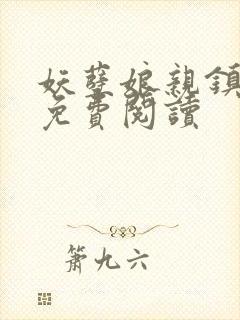 妖孽娘親鎮
免費閱讀
簫九六